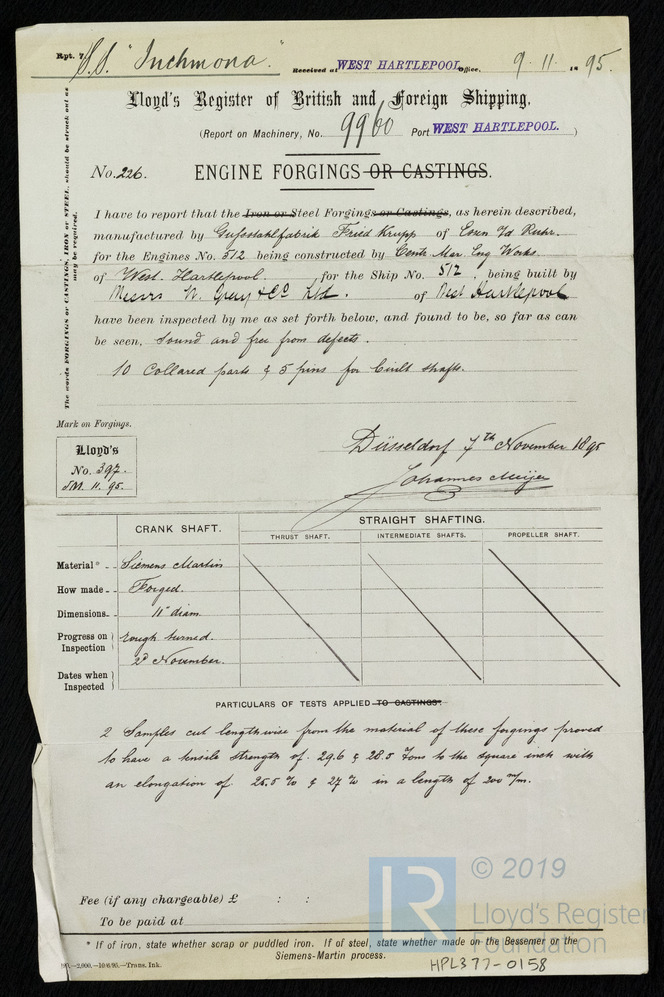 Rpt. 7. S.S. "Inchmona." Received at WEST HARTLEPOOL Office, 9. 11. 1895.
Lloyd's Register of British and Foreign Shipping.
(Report on Machinery, No. 9960 Port WEST HARTLEPOOL. )
No. 226. ENGINE FORGINGS OR CASTINGS.
The words FORGINGS or CASTINGS, IRON or STEEL, should be struck out as may be required.
I have to report that the Iron or Steel Forgings or Castings, as herein described,
manufactured by Gußstahlfabrik Fried Krupp of Essen a/d Ruhr.
for the Engines No. 512 being constructed by Centr. Mar. Eng Works.
of West. Hartlepool. for the Ship No. 512, being built by
Messrs W. Gray & Co. Ltd. of West Hartlepool
have been inspected by me as set forth below, and found to be, so far as can
be seen, sound and free from defects.
10 Collared parts & 5 pins for built shafts.
Mark on Forgings.
Lloyd's
No. 397.
J.M. 11. 95.
Düsseldorf 7th November 1895
Johannes Meijer
CRANK SHAFT. STRAIGHT SHAFTING.
THRUST SHAFT. INTERMEDIATE SHAFTS. PROPELLER SHAFT.
Material* - Siemens Martin
How made - - Forged.
Dimensions - - 11" diam
Progress on Inspection rough turned.
Dates when Inspected 2d November.
PARTICULARS OF TESTS APPLIED TO CASTINGS.
2 Samples cut lengthwise from the material of these forgings proved
to have a tensile strength of 29.6 & 28.5 Tons to the square inch with
an elongation of 25.5 % & 27 % in a length of 200 m/m.
Fee (if any chargeable) £ : :
To be paid at
* If of iron, state whether scrap or puddled iron. If of steel, state whether made on the Bessemer or the
Siemens-Martin process.
—2,000.—10/6/95.—Trans. Ink.
HPL377-0158
LR
© 2019
Lloyd's Register
Foundation